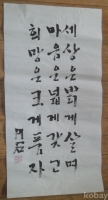 세상은밝게살며
마음은넓게갖고
희망은크게품자
kobay